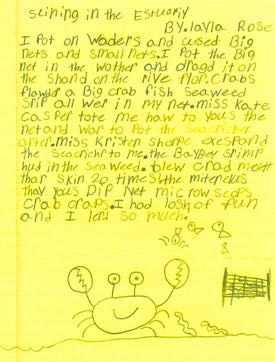 Seining in the Estuariy
BY.layla Rose
I Pot on Waders and cused Big
nets and small nets.I Pot the Big
net in the wother and dragd it on
the shand on the rive flor.Crabs
flawdr a Big crab fish Seaweed
Srip all wer in my net.miss Kate
Casper tote me haw to yous the
net and War to Pot the Seacrichr
after.miss Kristen sharpe exespand
the Seacrichr to me.the BayBey Srimp
hud in the Seaweed.blew Crad moatt
thar Skin 20 times!the miterealls
thay yous Dip Net microw scaps
Crab craps.I had losh of fun
and I lerd so much.